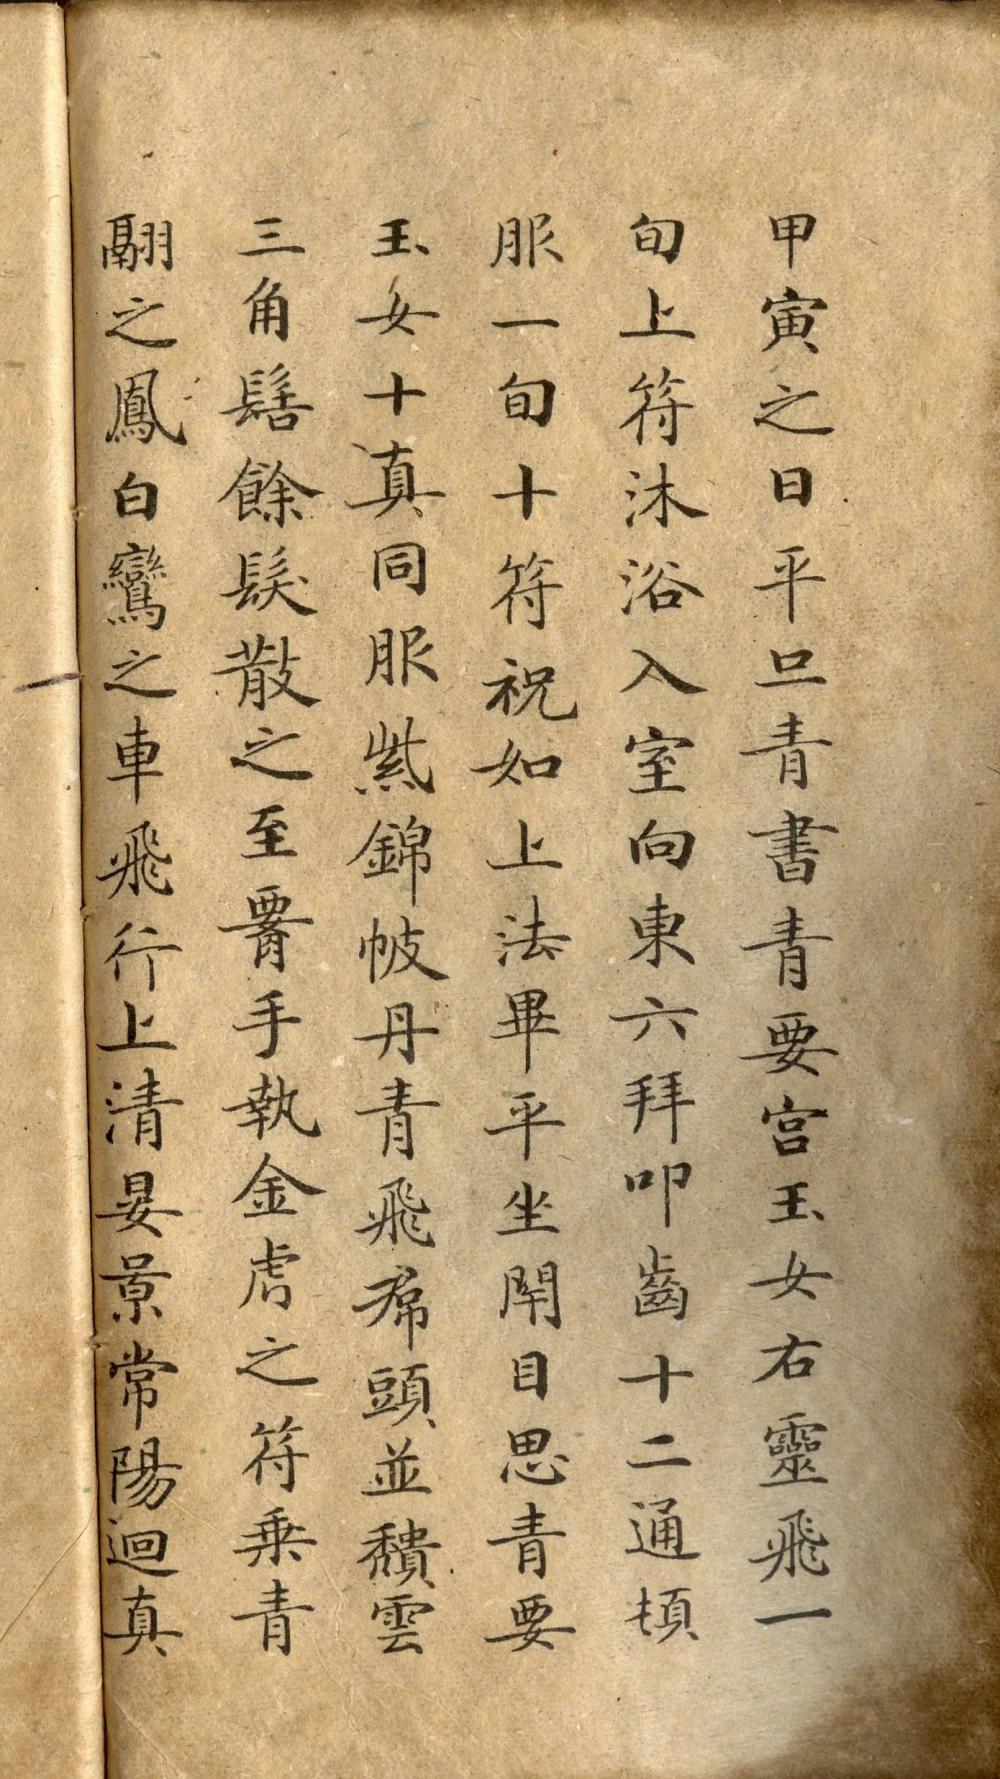 甲寅之日平旦青書青要宮玉女右靈飛一
旬上符沐浴入室向東六拜叩齒十二通頓
服一旬十符祝如上法畢平坐閇目思青要
玉女十真同服紫錦帔丹青飛帬頭並穨雲
三角髻餘髮散之至𦝫手執金虎之符乗青
翮之鳳白鸞之車飛行上清晏景常陽迴真